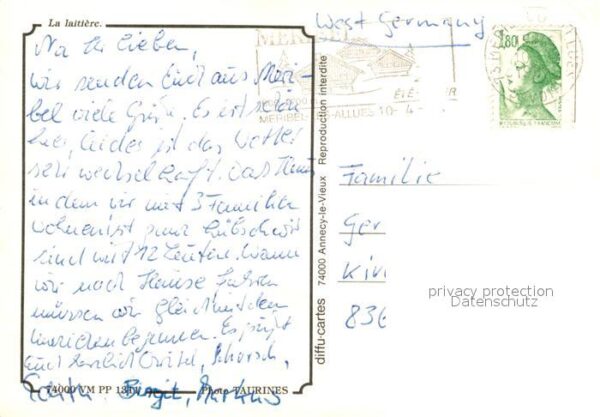 La laitière.
Na Ihr Lieben,
wir senden Euch aus Meri-
bel viele Grüße. Es ist schön
hier, leider ist das Wetter
sehr wechselhaft. Das Haus
in dem wir mit 3 Familien
wohnen ist ganz hübsch wir
sind mit 12 Leuten. Wenn
wir nach Hause fahren
müssen wir gleich mit den
beginnen. Es grüßt
Euch herzlich Christel, Schorsch,
Birgit, Markus
74000 VM PP
Photo TAURINES
diffu-cartes 74000 Annecy-le-Vieux Reproduction interdite
West Germany
MERIBEL
MERIBEL-LES-ALLUES
ETE
1,80
Familie
Ger
836
privacy protection
Datenschutz